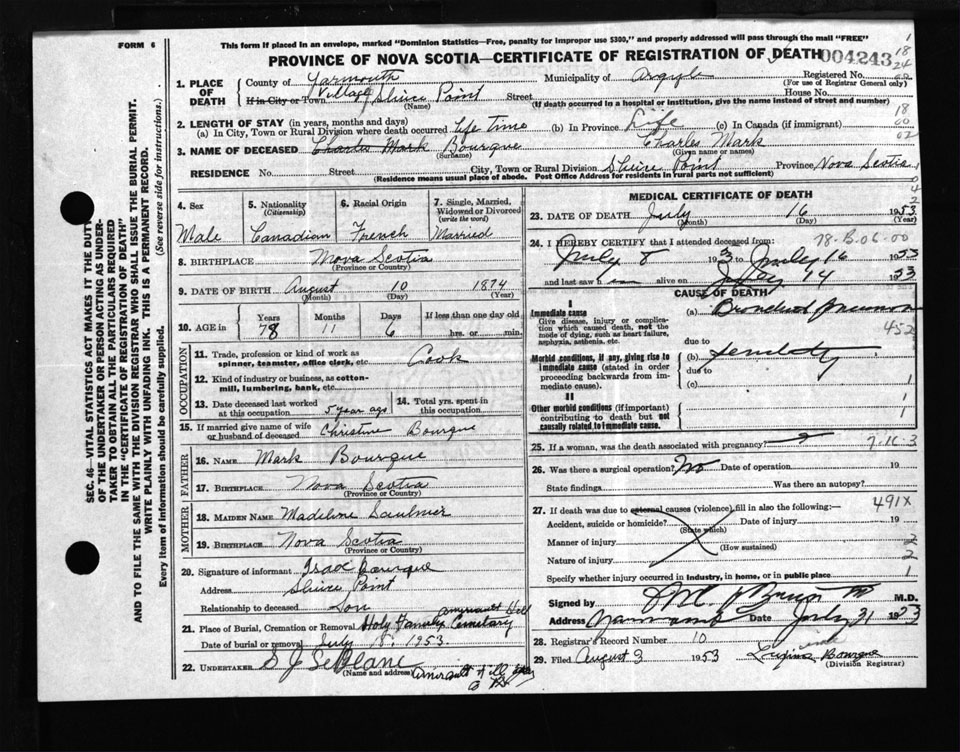 FORM 6
This form if placed in an envelope, marked "Dominion Statistics—Free, penalty for improper use $300," and properly addressed will pass through the mail "FREE"
PROVINCE OF NOVA SCOTIA—CERTIFICATE OF REGISTRATION OF DEATH 004243
1. PLACE OF DEATH
County of Yarmouth Municipality of Argyle Registered No.
(For use of Registrar General only)
If in City or Town Village Sluice Point Street House No.
(Name) (If death occurred in a hospital or institution, give the name instead of street and number)
2. LENGTH OF STAY (in years, months and days)
(a) In City, Town or Rural Division where death occurred Life Time (b) In Province Life (c) In Canada (if immigrant)
3. NAME OF DECEASED Charles Mark Bourque Charles Mark
(Surname) (Given name or names)
RESIDENCE No. Street City, Town or Rural Division Sluice Point Province Nova Scotia
(Residence means usual place of abode. Post Office Address for residents in rural parts not sufficient)
SEC. 46—VITAL STATISTICS ACT MAKES IT THE DUTY
OF THE UNDERTAKER OR PERSON ACTING AS UNDER-
TAKER TO OBTAIN ALL THE PARTICULARS REQUIRED
IN THE "CERTIFICATE OF REGISTRATION OF DEATH"
AND TO FILE THE SAME WITH THE DIVISION REGISTRAR WHO SHALL ISSUE THE BURIAL PERMIT.
WRITE PLAINLY WITH UNFADING INK. THIS IS A PERMANENT RECORD.
Every item of information should be carefully supplied. (See reverse side for instructions.)
4. Sex
Male
5. Nationality
(Citizenship)
Canadian
6. Racial Origin
French
7. Single, Married, Widowed or Divorced
(write the word)
Married
8. BIRTHPLACE Nova Scotia
(Province or Country)
9. DATE OF BIRTH August 10 1874
(Month) (Day) (Year)
10. AGE in Years Months Days If less than one day old
78 11 6 hrs. or min.
OCCUPATION
11. Trade, profession or kind of work as Cook
spinner, teamster, office clerk, etc
12. Kind of industry or business, as cotton-
mill, lumbering, bank, etc.
13. Date deceased last worked at this occupation 5 year ago
14. Total yrs. spent in this occupation
15. If married give name of wife or husband of deceased Christine Bourque
FATHER
16. NAME Mark Bourque
17. BIRTHPLACE Nova Scotia
(Province or Country)
MOTHER
18. MAIDEN NAME Madeline Saulnier
19. BIRTHPLACE Nova Scotia
(Province or Country)
20. Signature of informant Bourque
Address Sluice Point
Relationship to deceased Son
21. Place of Burial, Cremation or Removal Holy Family Cemetary Amirault Hill
Date of burial or removal July 18, 1953.
22. UNDERTAKER S J LeBlanc
(Name and address) Amirault Hill
MEDICAL CERTIFICATE OF DEATH
23. DATE OF DEATH July 16 1953
(Month) (Day) (Year)
24. I HEREBY CERTIFY that I attended deceased from: 78-B.06-00
July 8 1953 to July 16 1953
and last saw h im alive on July 14 1953
CAUSE OF DEATH
I
Immediate cause
Give disease, injury or complica-
tion which caused death, not the
mode of dying, such as heart failure,
asphyxia, asthenia, etc.
(a) Bronchial
due to
Morbid conditions, if any, giving rise to
immediate cause (stated in order
proceeding backwards from im-
mediate cause).
(b) Senility
due to
(c)
II
Other morbid conditions (if important)
contributing to death but not
causally related to immediate cause.
25. If a woman, was the death associated with pregnancy?
26. Was there a surgical operation? No Date of operation 19
State findings Was there an autopsy?
491X
27. If death was due to external causes (violence) fill in also the following:
Accident, suicide or homicide? Date of injury 19
(State which)
Manner of injury
(How sustained)
Nature of injury
Specify whether injury occurred in industry, in home, or in public place
Signed by M.D.
Address Date July 31 1953
28. Registrar's Record Number 10
29. Filed August 3 1953 Bourque
(Division Registrar)